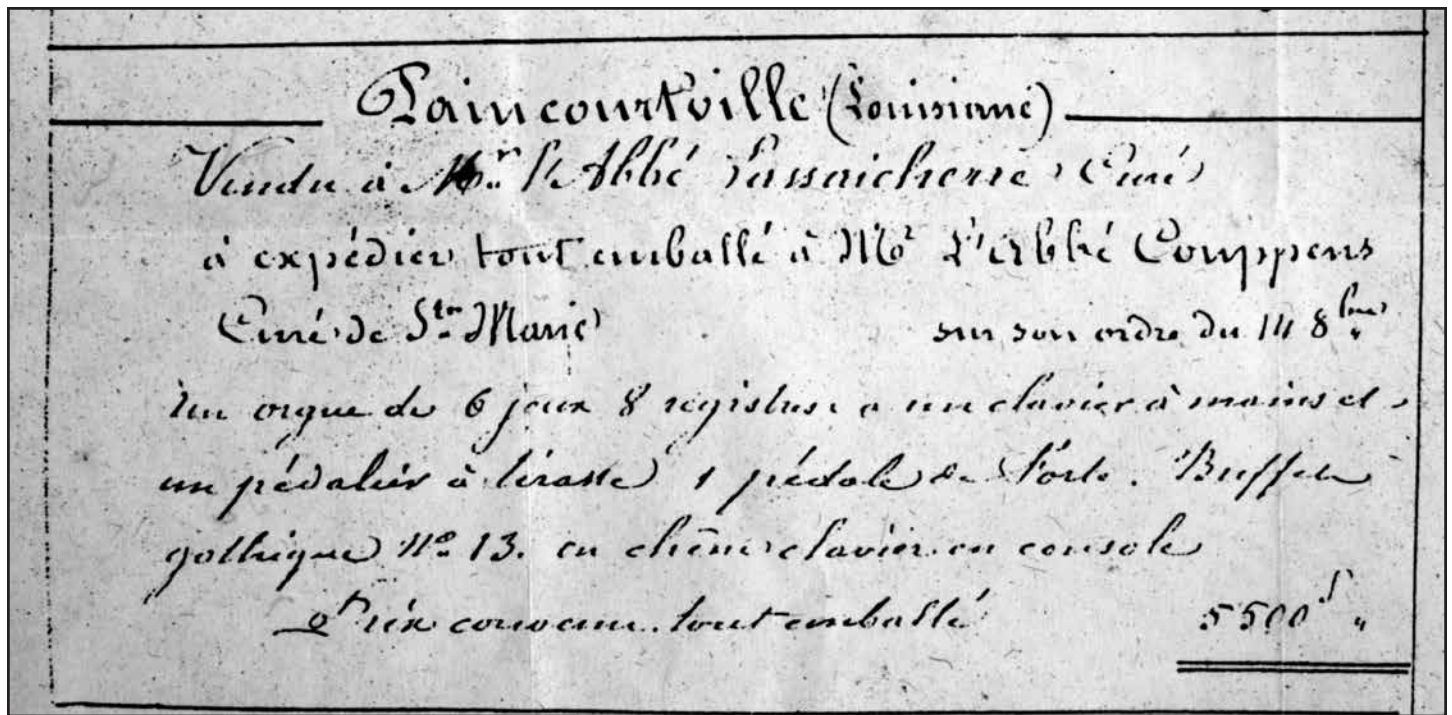 Paincourtville (Louisiane)
Vendu à Mr. l'Abbé Curé
à expédier tout emballé à Mr L'Abbé Couppens
Curé de Ste Marie sur son ordre du 8bre
Un orgue de 6 jeux 8 registres a un clavier à mains et
un pédalier à tirasse 1 pédale de Forte. Buffet
gothique No 13. en chêne clavier en console
Prix convenu tout emballé 5500f "